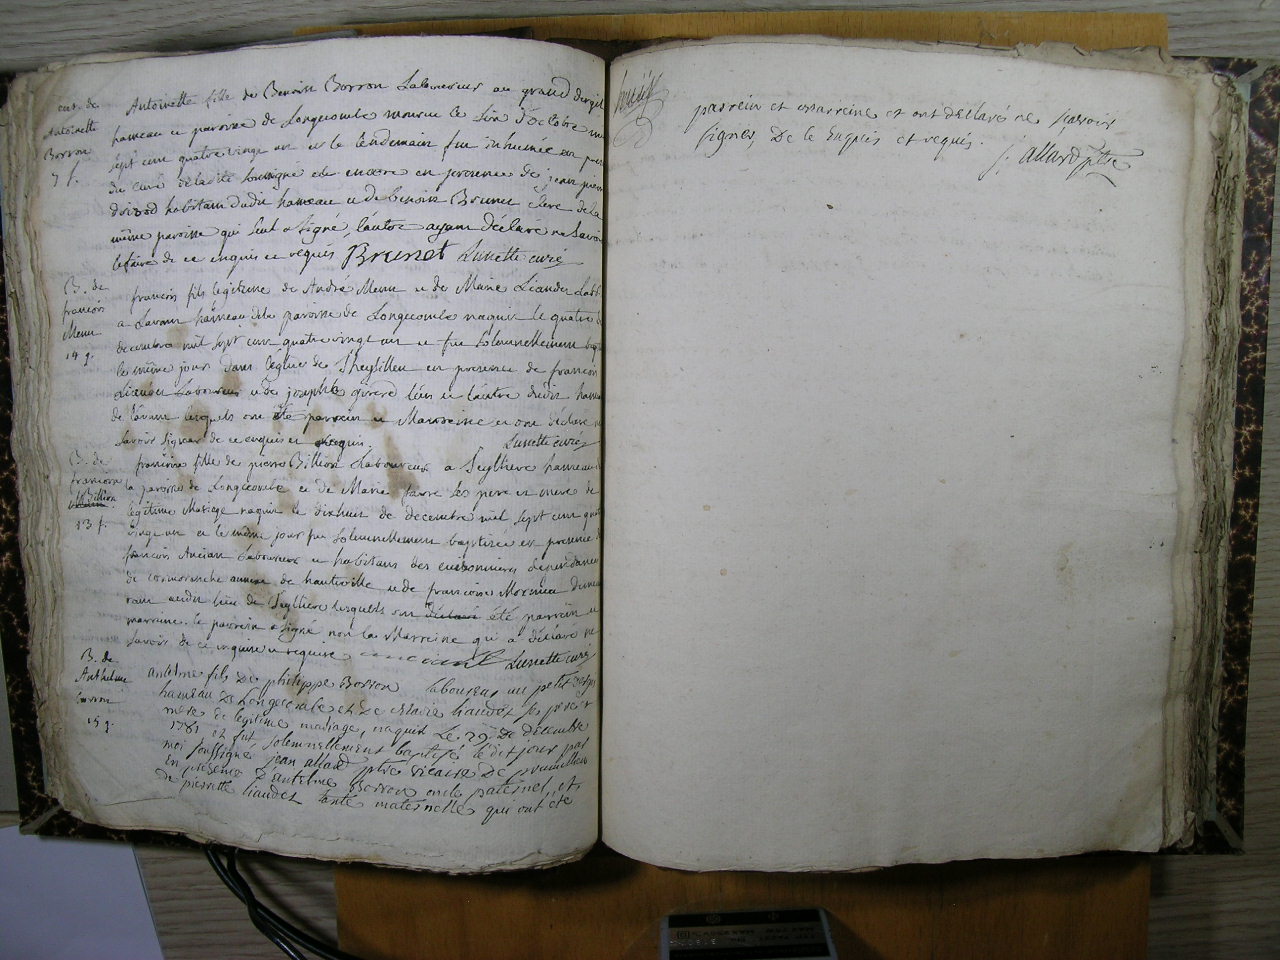 ent. de
Antoinette
Borron
7 f.
Antoinette fille de Benoit Borron Laboureur au grand
hameau et paroisse de Longecombe mourut le six d'octobre mil
sept cent quatre vingt un et le lendemain fut inhumée en presence
du curé de la dite soussigné et encore en presence de jean pierre
habitant dudit hameau et de benoit Brunet clerc de la
même paroisse qui seul a signé, l'autre ayant déclaré ne savoir
le faire de ce enquis et requis Brunet Lunette curé
B. de
françois
Menu
14 g.
françois fils legitime de André Menu et de Marie Liaudet Lab.
a Lavant hameau de la paroisse de Longecombe naquit le quatre de
decembre mil sept cent quatre vingt un et fut solennellement baptisé
le même jour dans l'eglise de Thezillieu en presence de françois
Liaudet Laboureur et de josephte girerd l'un et l'autre dudit hameau
de Lavant lesquels ont été parrein et Marreine et ont declaré ne
savoir signer de ce enquis et requis. Lunette curé
B. de
francoise
Billion
13 f.
francoise fille de pierre Billion Laboureur a hameau de
la paroisse de Longecombe et de Marie favre ses pere et mere de
légitime Mariage naquit le dixhuit de decembre mil sept cent quatre
vingt un et le même jour fut solennellement baptisée en presence de
françois Ancian Laboureur et habitant des dependance
de cormoranche annexe de hauteville et de francoise
audit lieu de lesquels ont été parrein et
marreine. le parrein a signé non la Marreine qui a déclaré ne
savoir de ce enquise et requise ancian Lunette curé
B. de
Anthelme
borron
15 g.
antelme fils de philippe Borron laboureur au petit
hameau de Longecombe et de Marie liaudet ses père et
mère de legitime mariage, naquit le 29 de decembre
1781 et fut solemnellement baptisé le dit jour par
moi soussigné jean allard ptre vicaire de
en presence d'antelme Borron oncle paternel, et
de pierrette liaudet tante maternelle qui ont été
parrein et marreine et ont declaré ne sçavoir
signer, De le enquis et requis.
j. allard ptre